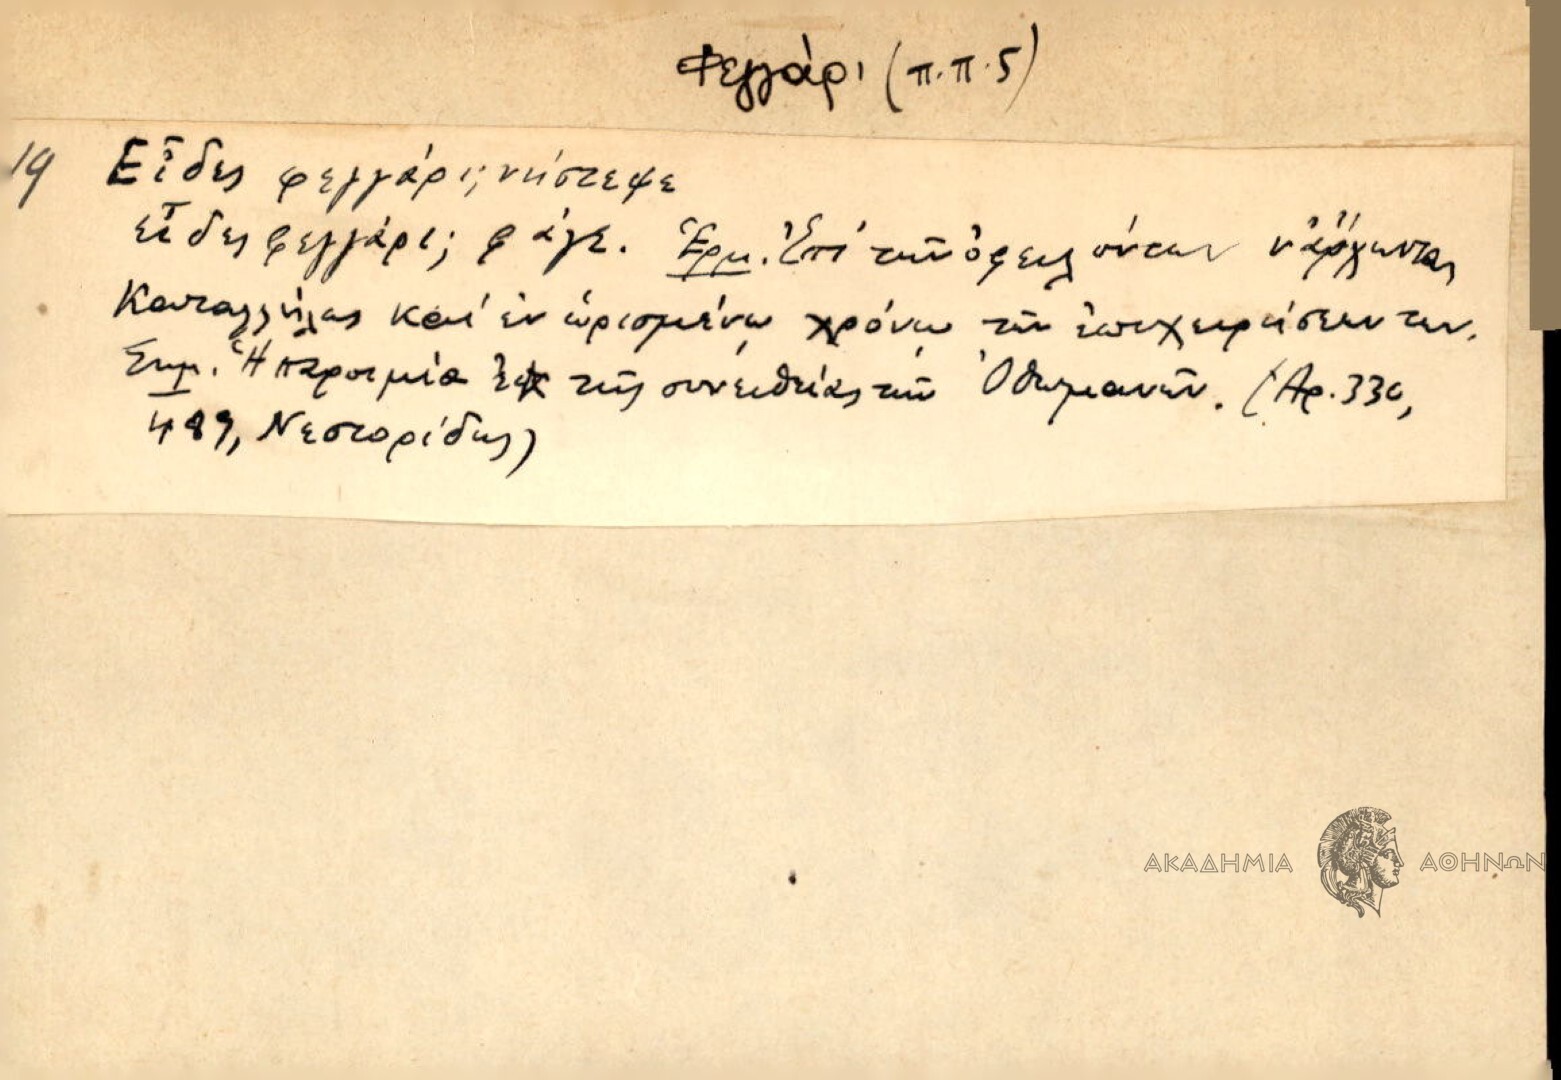 Φεγγάρι (π.π.5)
19 Εἶδες φεγγάρι; νήστεψε
εἶδες φεγγάρι; φάγε. Ἑρμ. Ἐπὶ τῶν ὀφειλόντων ν' ἄρχωνται
καταλλήλως καὶ ἐν ὡρισμένῳ χρόνῳ τῶν ἐπιχειρήσεών των.
Σημ. Ἡ παροιμία ἐκ τῆς συνειθείας τῶν Ὀθωμανῶν. (Αρ. 330,
489, Νεστορίδης)
ΑΚΑΔΗΜΙΑ ΑΘΗΝΩΝ